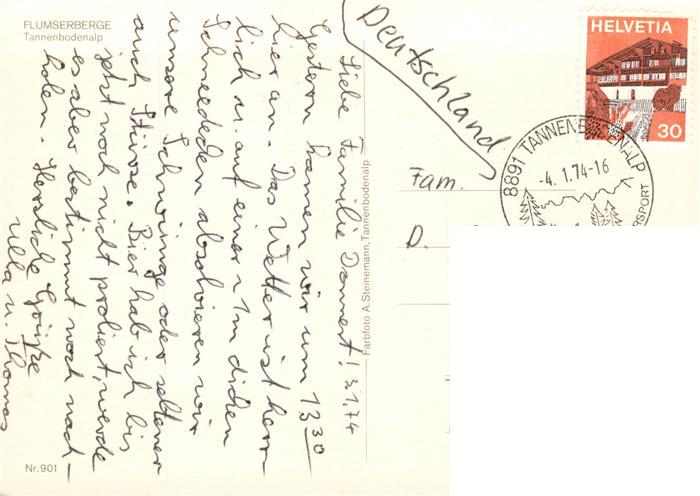 FLUMSERBERGE
Tannenbodenalp
Liebe Familie Donnert! 3.1.74
Gestern kamen wir um 13³⁰
hier an. Das Wetter ist herr-
lich u. auf einer 1 m dicken
Schneedecken absolvieren wir
unsere Schwünge oder seltener
auch Stürze. Bier hab ich bis
jetzt noch nicht probiert, werde
es aber bestimmt noch nach-
holen. Herzliche Grüße
Ulla u. Thomas
Nr. 901
Farbfoto A. Steinemann, Tannenbodenalp
Deutschland
Fam.
D.
HELVETIA
30
8891 TANNENBODENALP
-4.1.74-16